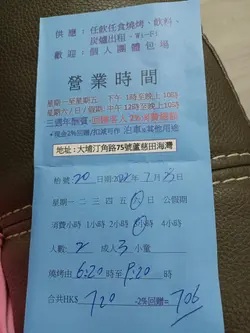 供應：任飲任食燒烤、飲料、
炭爐出租、Wi-Fi
歡迎：個人團體包場
營業時間
星期一至星期五 下午1時至晚上10時
星期六/日/假期 中午12時至晚上10時
三週年酬賓
2%消費回贈
*現金2%回贈/扣減可作 泊車及其他用途
地址：大埔汀角路75號蘆慈田海灣
枱號 20 日期
星期一 二 三 四 五 六 日 公假期
消費小時 1小時 2小時 3小時 4小時
人數 2 成人 小童
燒烤由 6:20 時至 9:20 時
合共HK$ 720 -2%回贈= 706